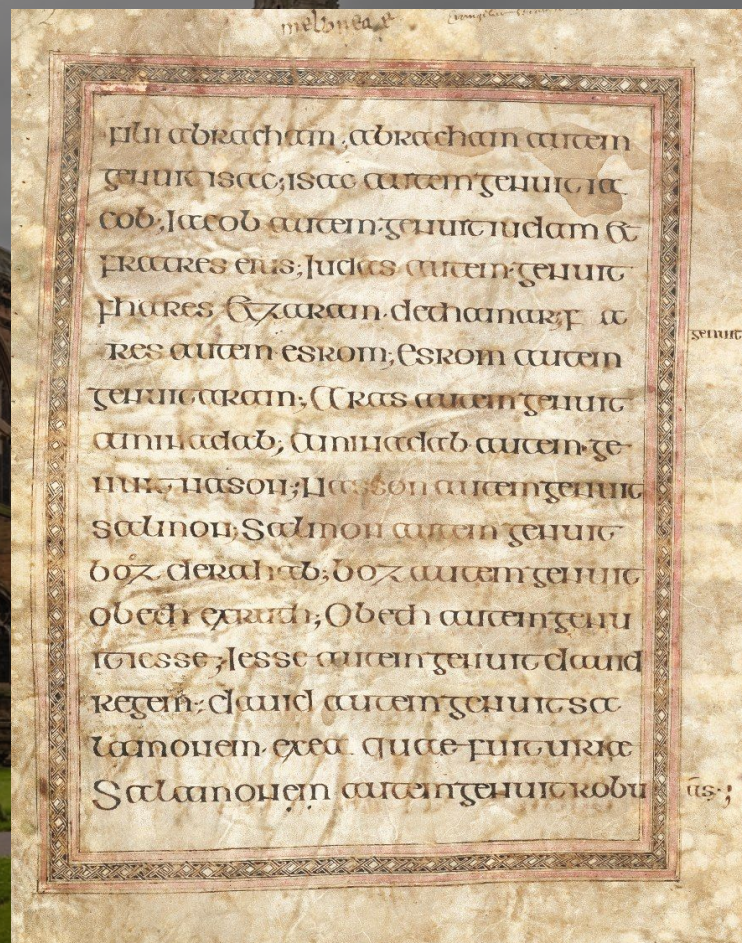 filii abracham. abracham autem
genuit isac; isac autem genuit ia
cob; Iacob autem. genuit iudam et
fratres eius; Iudas autem. genuit
phares et zaram. dethamar; f a
res autem esrom; Esrom autem
genuit aram; Aras autem genuit
aminadab; Aminadab autem. ge-
nuit nason; Nasson autem genuit
salmon; Salmon autem genuit
boz derahab; boz autem genuit
obeth exruth; Obeth autem genu
it iesse; Iesse autem genuit dauid
regem; dauid autem genuit sa
lamonem. exea. quae fuit uriae
Salamonem autem genuit robu
genuit